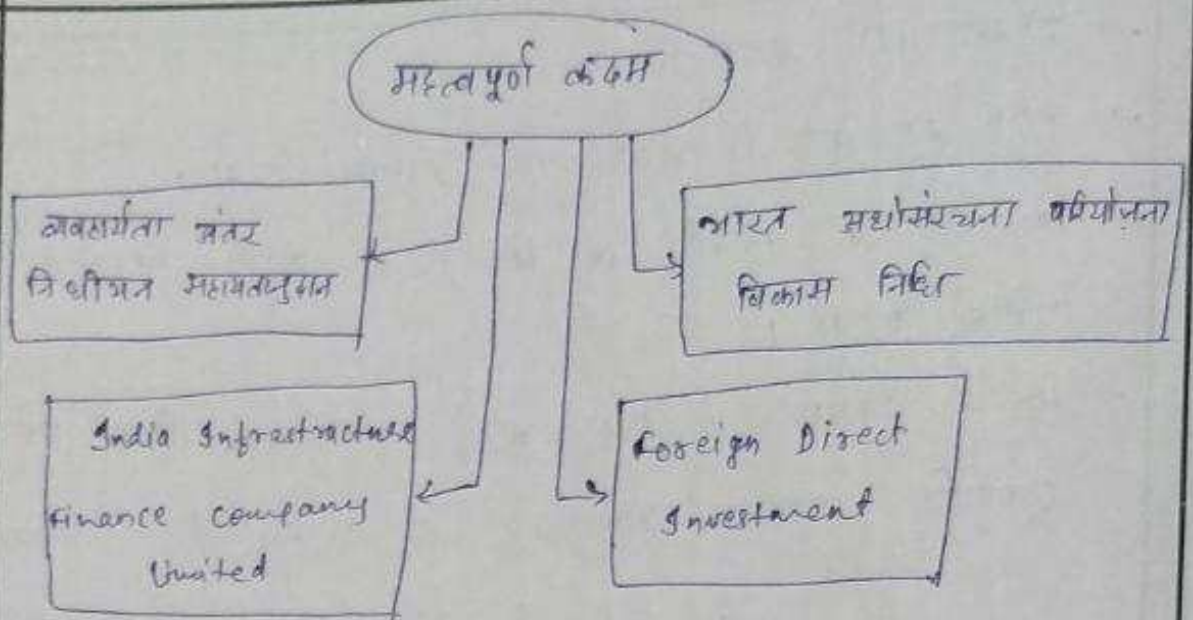 महत्वपूर्ण कदम
व्यवहार्यता अंतर
निधीयन सहायतनुदान
भारत अधोसंरचना परियोजना
विकास निधि
India Infrastructure
Finance Company
Limited
Foreign Direct
Investment